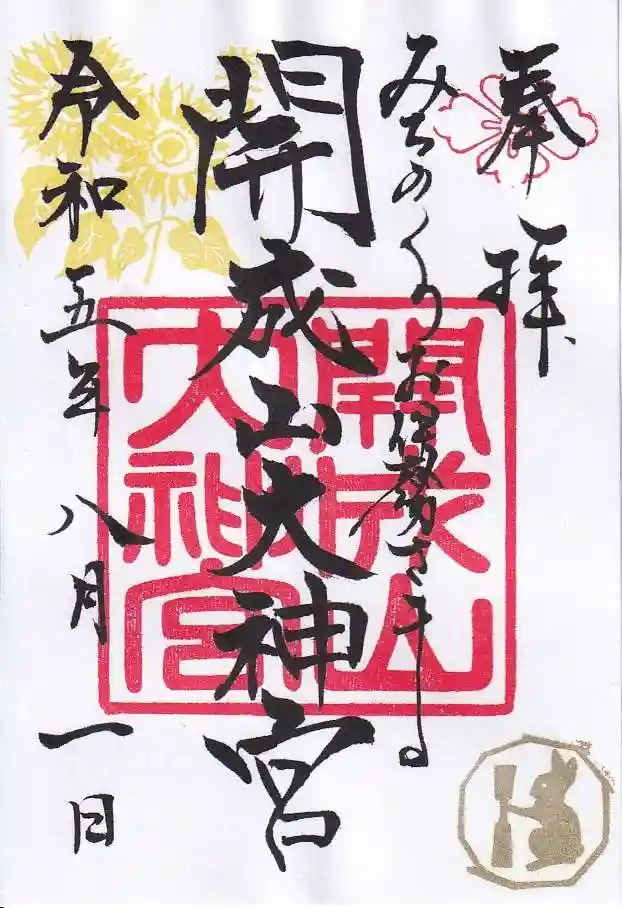 奉拝
みちのくのお伊勢さま
開成山大神宮
令和五年八月一日
開成山
大神宮